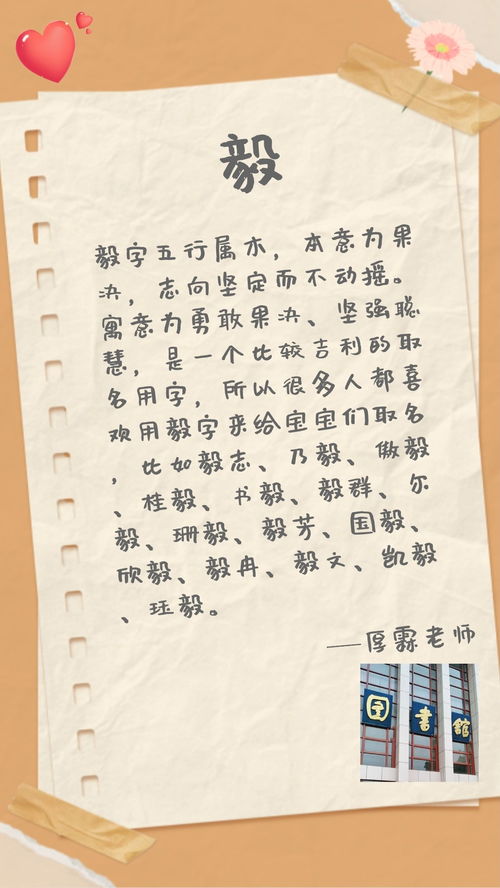 毅
毅字五行属木，本意为果
决，志向坚定而不动摇。
寓意为勇敢果决、坚强聪
慧，是一个比较吉利的取
名用字，所以很多人都喜
欢用毅字来给宝宝们取名
，比如毅志、乃毅、傲毅
、桂毅、书毅、毅群、尔
毅、珊毅、毅芳、国毅、
欣毅、毅冉、毅文、凯毅
、珏毅。
——厚霖老师
图書館